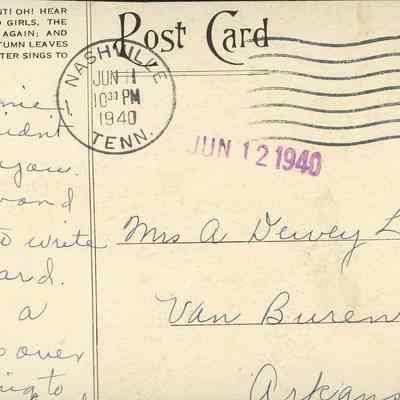 NT! OH! HEAR
D GIRLS, THE
AGAIN; AND
TUMN LEAVES
TER SINGS TO
Post Card
NASHVILLE
JUN 11
10 30 PM
1940
TENN.
JUN 12 1940
didn't
you.
to write
ard.
a
over
ing to
Mrs A Dewey L
Van Buren
Arkans